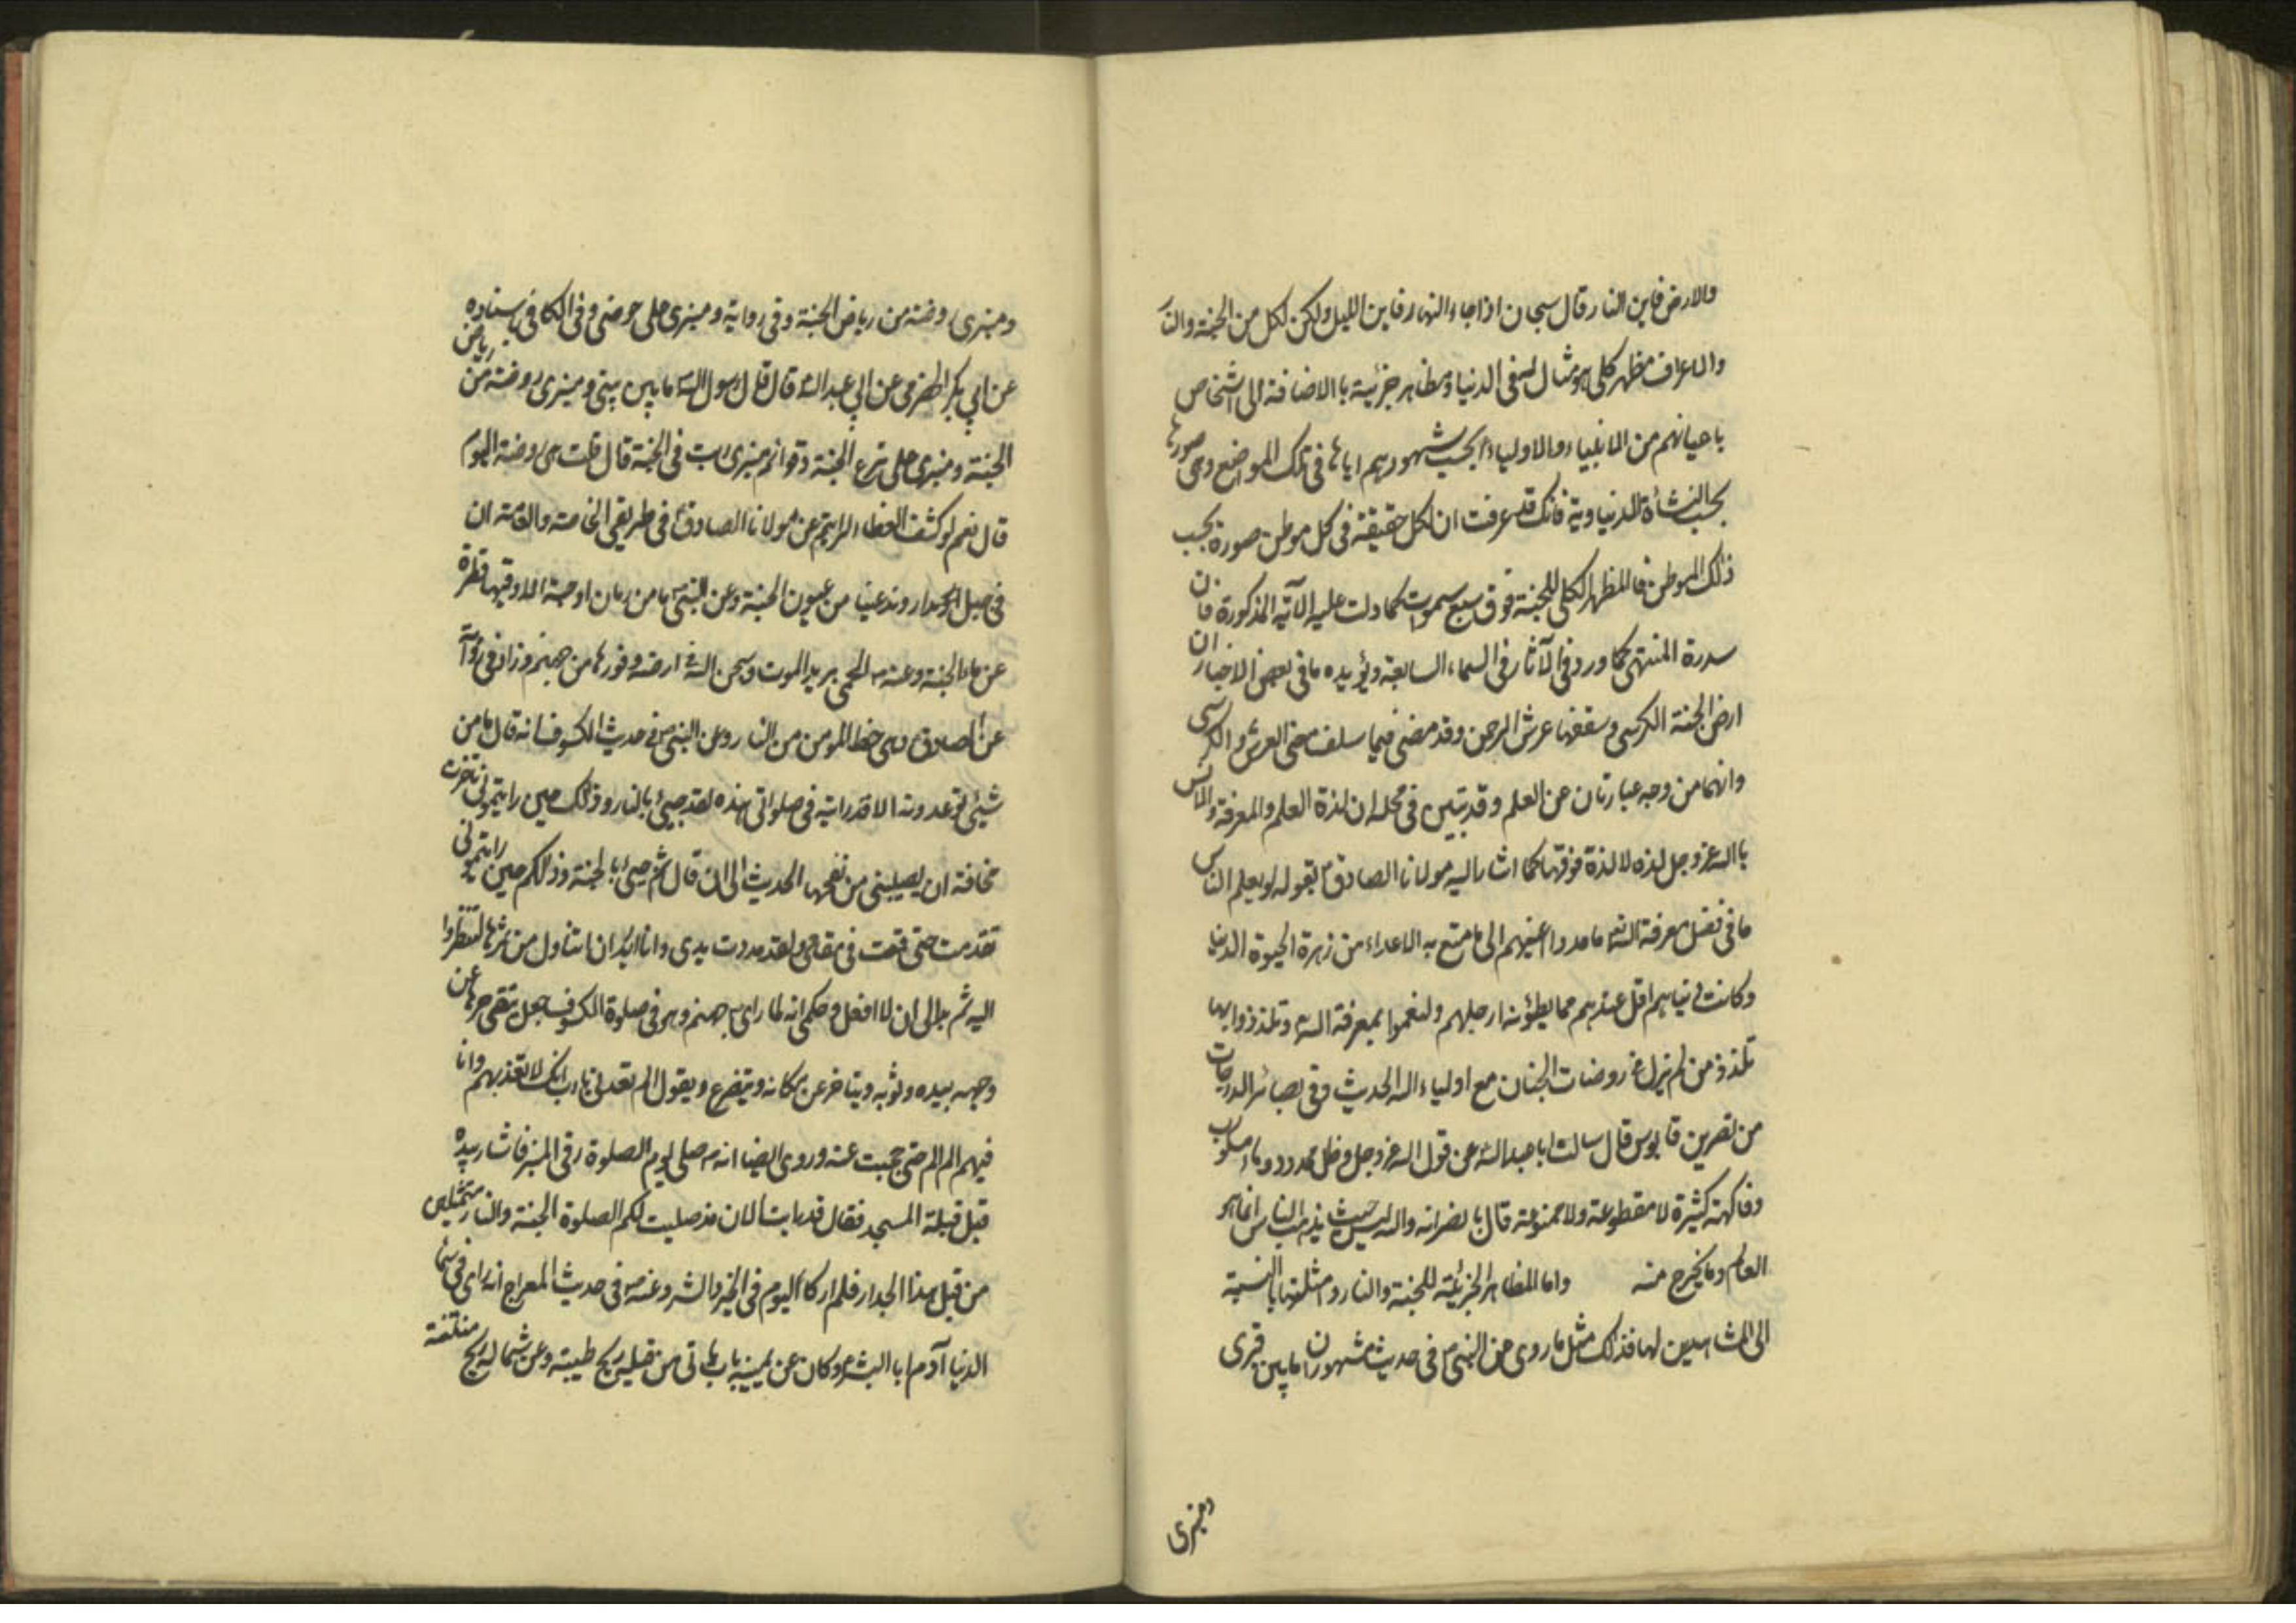 والارض فاين النار قال سبحان اذا جاء النهار فاين الليل ولكن لكل من الجنة والنار
والاعراف مظهر كلى هو مثال له فى الدنيا ومظاهر جزئية بالاضافة الى اشخاص
باعيانهم من الانبياء والاولياء بحسب شهودهم اياها فى تلك المواضع وهى صورها
بحسب النشأة الدنياوية فانك قد عرفت ان لكل حقيقة فى كل موطن صورة بحسب
ذلك الموطن فالمظهر الكلى للجنة فوق سبع سموات كما دلت عليه الآية المذكورة فان
سدرة المنتهى كما ورد فى الآثار فى السماء السابعة ويؤيده ما فى بعض الاخبار ان
ارض الجنة الكرسى وسقفها عرش الرحمن وقد مضى فيما سلف معنى العرش والكرسى
وانهما من وجه عبارتان عن العلم وقد تبين فى محله ان لذة العلم والمعرفة والانس
بالله عز وجل لذه لا لذة فوقها كما اشار اليه مولانا الصادق ع بقوله لو يعلم الناس
ما فى فضل معرفة الله ما مدوا اعينهم الى ما متع به الاعداء من زهرة الحيوة الدنيا
وكانت دنياهم اقل عندهم مما يطؤنه ارجلهم ولنعموا بمعرفة الله وتلذذوا بها
تلذذ من لم يزل فى روضات الجنان مع اولياء الله الحديث وفى بصائر الدرجات
من نصر بن قابوس قال سالت ابا عبد الله عن قول الله عز وجل وظل ممدود وماء مسكوب
وفاكهة كثيرة لا مقطوعة ولا ممنوعة قال يا نصر انه والله ليس حيث يذهب الناس انما هو
العالم وما يخرج منه واما المظاهر الجزئية للجنة والنار وامثلتها بالنسبة
الى المشاهدين لها فذلك مثل ما روى عن النبى ص فى حديث مشهور ان ما بين قبرى
ومنبرى
ومنبرى روضة من رياض الجنة وفى رواية ومنبرى على حوضى وفى الكافى باسناده
عن ابي بكر الحضرمى عن ابي عبد الله قال قال رسول الله ص ما بين بيتى ومنبرى روضة من رياض
الجنة ومنبرى على ترعة الجنة وقوائم منبرى ربت فى الجنة قال قلت هى روضة اليوم
قال نعم لو كشف الغطاء لرايتم عن مولانا الصادق ع فى طريقى الخاصة والعامة ان
فى جبل اروند عينا من عيون الجنة وعن النبى ص ما من رمان او حبة الا وفيها قطرة
عن ماء الجنة وعنه ص الحمى بريد الموت وسجن الله فى ارضه وفورها من جهنم وزاد فى رواية
عن الصادق ع وهى حظ المومن من النار وعن النبى ص فى حديث الكسوف انه قال ما من
شيئ توعدونه الا قد رايته فى صلواتى هذه لقد جيئ بالنار وذلك حين رايتمونى تاخرت
مخافة ان يصيبنى من نفحها الحديث الى ان قال ثم جيئ بالجنة وذلكم حين رايتمونى
تقدمت حتى قمت فى مقامى ولقد مددت يدى وانا اريد ان اتناول من ثمرها لتنظروا
اليه ثم بدا لى ان لا افعل وحكى انه لما راى ص جهنم وهو فى صلوة الكسوف جعل يتقى حرها عن
وجهه بيده وثوبه ويتاخر عن مكانه ويتضرع ويقول الم تعدنى يا رب انك لا تعذبهم وانا
فيهم الم الم حتى حجبت عنه وروى ايضا انه ص صلى يوم الصلوة رقى المنبر فاشار بيده
قبل قبلة المسجد فقال قد رايت الان مذ صليت لكم الصلوة الجنة والنار متمثلين
من قبل هذا الجدار فلم ار كاليوم فى الخير والشر وعنه ص فى حديث المعراج انه راى فى سماء
الدنيا آدم ابا البشر وكان عن يمينه باب ياتى من قبله ريح طيبة وعن شماله ريح منتنة